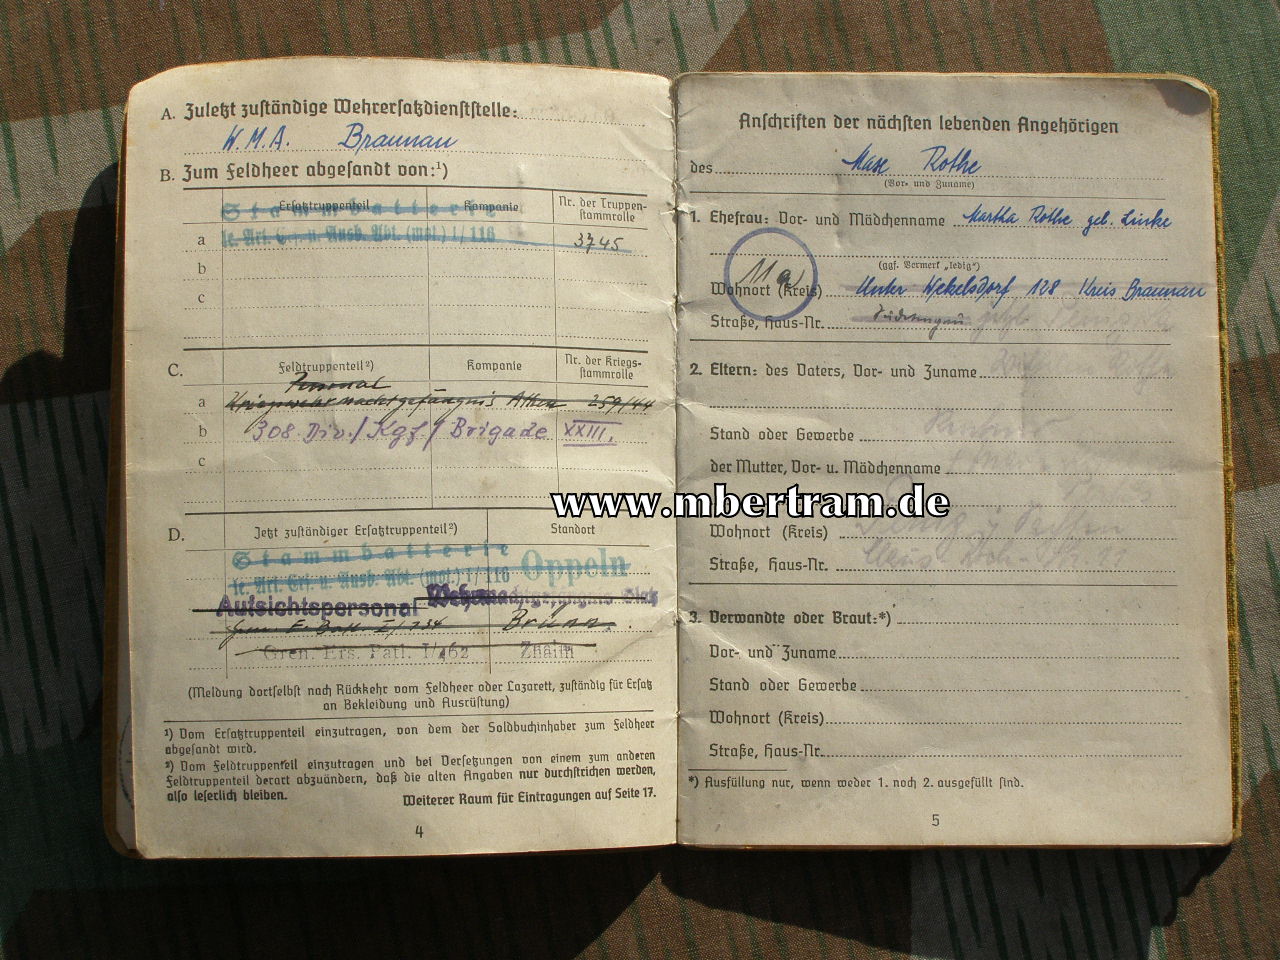 A. Zuletzt zuständige Wehrersatzdienststelle:
W.M.A. Braunau
B. Zum Feldheer abgesandt von:¹)
Ersatztruppenteil Kompanie Nr. der Truppen-
stammrolle
Stammbatterie
a le. Art. Ers. u. Ausb. Abt. (mot.) I/116 3745
b
c
C. Feldtruppenteil²) Kompanie Nr. der Kriegs-
stammrolle
a Kriegswehrmachtgefängnis 259/44
b 308. Div./Kgf/Brigade XXIII.
c
D. Jetzt zuständiger Ersatztruppenteil²) Standort
Stammbatterie
le. Art. Ers. u. Ausb. Abt. (mot.) I/116 Oppeln
Aufsichtspersonal
Brünn.
Gren. Ers. Batl. I/462 Znaim
(Meldung dortselbst nach Rückkehr vom Feldheer oder Lazarett, zuständig für Ersatz
an Bekleidung und Ausrüstung)
¹) Vom Ersatztruppenteil einzutragen, von dem der Soldbuchinhaber zum Feldheer
abgesandt wird.
²) Vom Feldtruppenteil einzutragen und bei Versetzungen von einem zum anderen
Feldtruppenteil derart abzuändern, daß die alten Angaben nur durchstrichen werden,
also leserlich bleiben.
Weiterer Raum für Eintragungen auf Seite 17.
4
Anschriften der nächsten lebenden Angehörigen
des Max Rothe
(Vor- und Zuname)
1. Ehefrau: Vor- und Mädchenname Martha Rothe geb. Linke
(ggf. Vermerk „ledig")
11a
Wohnort (Kreis) Unter Wekelsdorf 128 Kreis Braunau
Straße, Haus-Nr. Sudetengau
2. Eltern: des Vaters, Vor- und Zuname
Stand oder Gewerbe
der Mutter, Vor- u. Mädchenname
Wohnort (Kreis)
Straße, Haus-Nr.
3. Verwandte oder Braut:*)
Vor- und Zuname
Stand oder Gewerbe
Wohnort (Kreis)
Straße, Haus-Nr.
*) Ausfüllung nur, wenn weder 1. noch 2. ausgefüllt sind.
5
www.mbertram.de